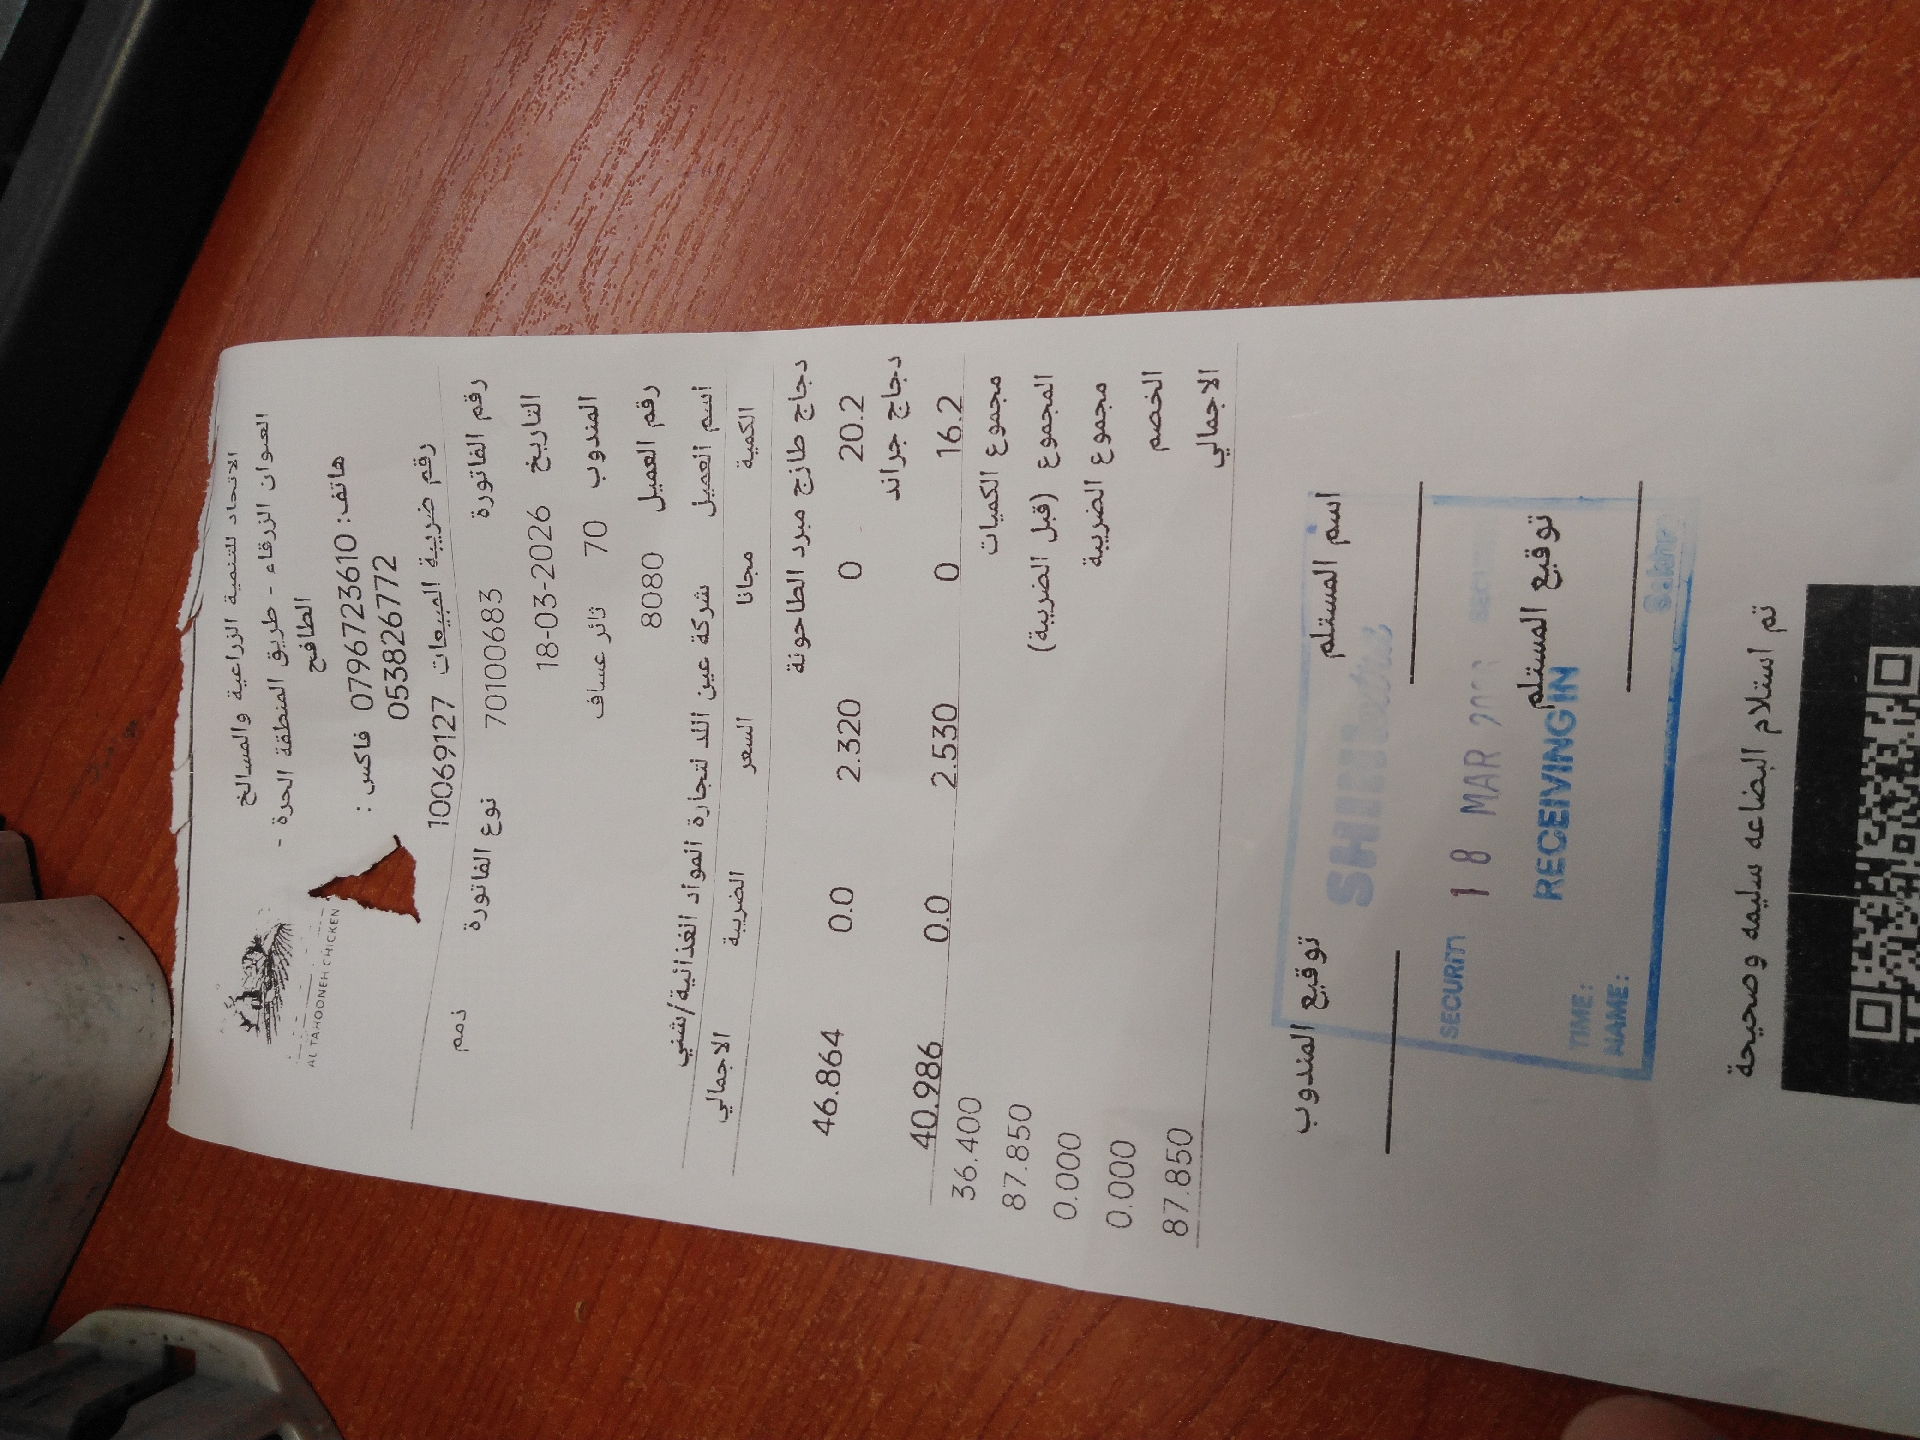 الاتحاد للتنمية الزراعية والمسالخ
العنوان الزرقاء - طريق المنطقة الحرة -
الطافح
هاتف: 0796723610 فاكس :
053826772
رقم ضريبة المبيعات 10069127
AL TAHOONEH CHICKEN
رقم الفاتورة 70100683 نوع الفاتورة ذمم
التاريخ 18-03-2026
المندوب 70 ثائر عساف
رقم العميل 8080
اسم العميل شركة عين اللد لتجارة المواد الغذائية/شني
الكمية مجانا السعر الضريبة الاجمالي
دجاج طازج مبرد الطاحونة
20.2 0 2.320 0.0 46.864
دجاج جراند
16.2 0 2.530 0.0 40.986
مجموع الكميات 36.400
المجموع (قبل الضريبة) 87.850
مجموع الضريبة 0.000
الخصم 0.000
الاجمالي 87.850
اسم المستلم توقيع المندوب
توقيع المستلم
SECURITY 18 MAR
RECEIVING IN
TIME:
NAME:
تم استلام البضاعه سليمه وصحيحة